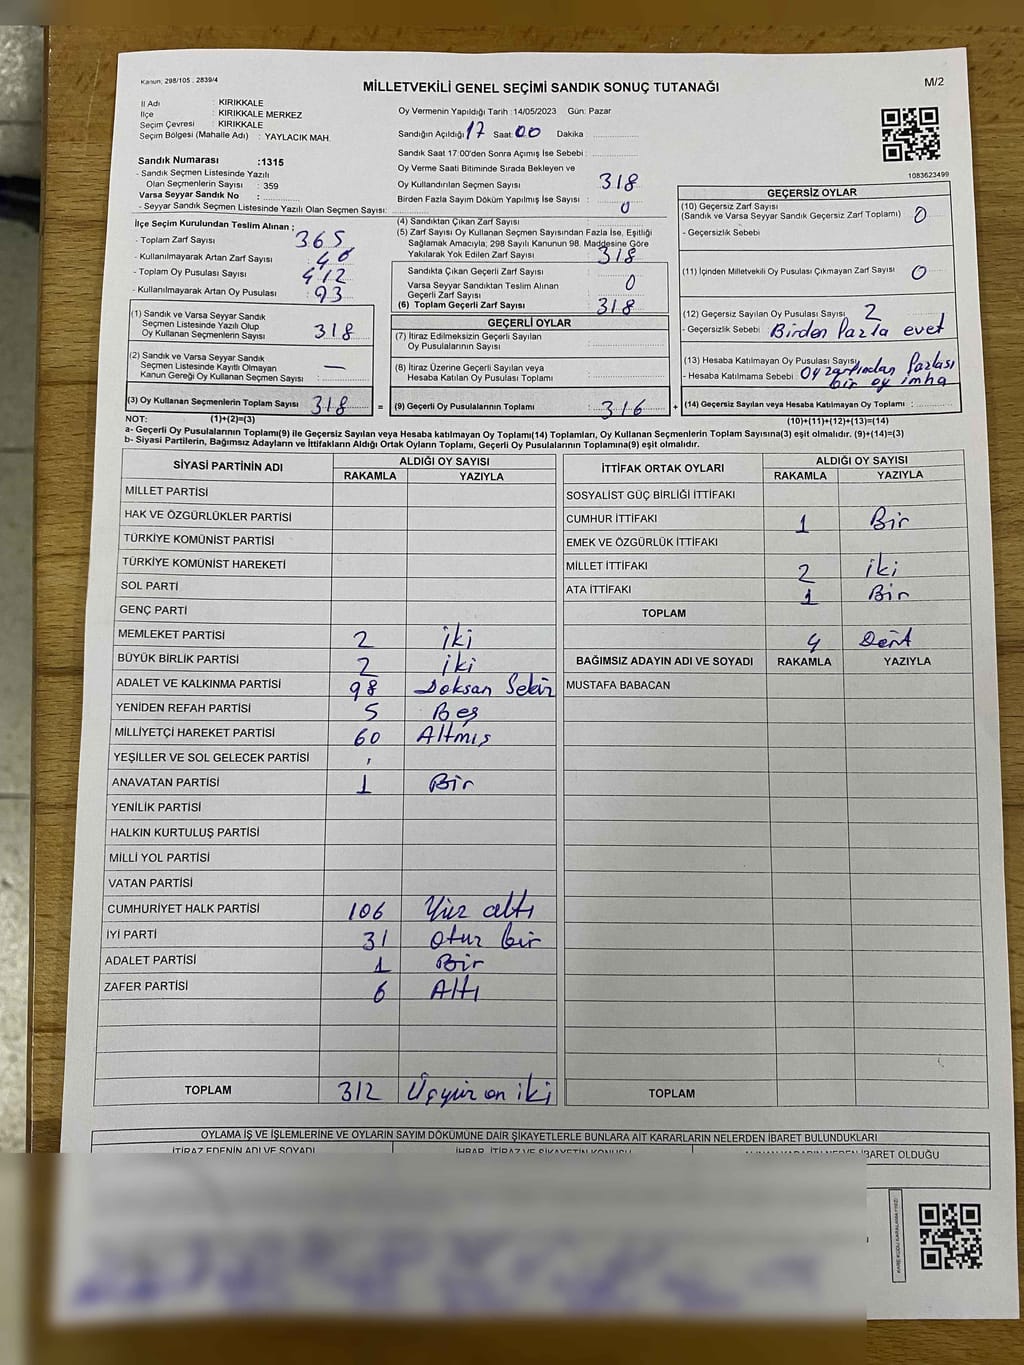 Kanun: 298/105 . 2839/4
MİLLETVEKİLİ GENEL SEÇİMİ SANDIK SONUÇ TUTANAĞI
M/2
İl Adı : KIRIKKALE
İlçe : KIRIKKALE MERKEZ
Seçim Çevresi : KIRIKKALE
Seçim Bölgesi (Mahalle Adı) : YAYLACIK MAH.
Sandık Numarası :1315
- Sandık Seçmen Listesinde Yazılı
Olan Seçmenlerin Sayısı : 359
Varsa Seyyar Sandık No :
- Seyyar Sandık Seçmen Listesinde Yazılı Olan Seçmen Sayısı:
Oy Vermenin Yapıldığı Tarih :14/05/2023 Gün: Pazar
Sandığın Açıldığı 17 Saat 00 Dakika :
Sandık Saat 17:00'den Sonra Açımış İse Sebebi :
Oy Verme Saati Bitiminde Sırada Bekleyen ve
Oy Kullandırılan Seçmen Sayısı 318
Birden Fazla Sayım Döküm Yapılmış İse Sayısı : 0
1083623499
İlçe Seçim Kurulundan Teslim Alınan ;
- Toplam Zarf Sayısı 365
- Kullanılmayarak Artan Zarf Sayısı : 46
- Toplam Oy Pusulası Sayısı 412
- Kullanılmayarak Artan Oy Pusulası : 93
(1) Sandık ve Varsa Seyyar Sandık
Seçmen Listesinde Yazılı Olup
Oy Kullanan Seçmenlerin Sayısı : 318
(2) Sandık ve Varsa Seyyar Sandık
Seçmen Listesinde Kayıtlı Olmayan
Kanun Gereği Oy Kullanan Seçmen Sayısı : —
(3) Oy Kullanan Seçmenlerin Toplam Sayısı : 318 =
(4) Sandıktan Çıkan Zarf Sayısı
(5) Zarf Sayısı Oy Kullanan Seçmen Sayısından Fazla İse, Eşitliği
Sağlamak Amacıyla; 298 Sayılı Kanunun 98. Maddesine Göre
Yakılarak Yok Edilen Zarf Sayısı : 318
Sandıkta Çıkan Geçerli Zarf Sayısı :
Varsa Seyyar Sandıktan Teslim Alınan
Geçerli Zarf Sayısı : 0
(6) Toplam Geçerli Zarf Sayısı : 318
GEÇERLİ OYLAR
(7) İtiraz Edilmeksizin Geçerli Sayılan
Oy Pusulalarının Sayısı :
(8) İtiraz Üzerine Geçerli Sayılan veya
Hesaba Katılan Oy Pusulası Toplamı :
(9) Geçerli Oy Pusulalarının Toplamı : 316 +
GEÇERSİZ OYLAR
(10) Geçersiz Zarf Sayısı
(Sandık ve Varsa Seyyar Sandık Geçersiz Zarf Toplamı) : 0
- Geçersizlik Sebebi :
(11) İçinden Milletvekili Oy Pusulası Çıkmayan Zarf Sayısı : 0
(12) Geçersiz Sayılan Oy Pusulası Sayısı : 2
- Geçersizlik Sebebi : Birden Fazla evet
(13) Hesaba Katılmayan Oy Pusulası Sayısı
- Hesaba Katılmama Sebebi : Oy zarfından fazlası
bir oy imha
(14) Geçersiz Sayılan veya Hesaba Katılmayan Oy Toplamı :
NOT: (1)+(2)=(3) (10)+(11)+(12)+(13)=(14)
a- Geçerli Oy Pusulalarının Toplamı(9) ile Geçersiz Sayılan veya Hesaba katılmayan Oy Toplamı(14) Toplamları, Oy Kullanan Seçmenlerin Toplam Sayısına(3) eşit olmalıdır. (9)+(14)=(3)
b- Siyasi Partilerin, Bağımsız Adayların ve İttifakların Aldığı Ortak Oyların Toplamı, Geçerli Oy Pusulalarının Toplamına(9) eşit olmalıdır.
SİYASİ PARTİNİN ADI ALDIĞI OY SAYISI
RAKAMLA YAZIYLA
MİLLET PARTİSİ
HAK VE ÖZGÜRLÜKLER PARTİSİ
TÜRKİYE KOMÜNİST PARTİSİ
TÜRKİYE KOMÜNİST HAREKETİ
SOL PARTİ
GENÇ PARTİ
MEMLEKET PARTİSİ 2 iki
BÜYÜK BİRLİK PARTİSİ 2 iki
ADALET VE KALKINMA PARTİSİ 98 Doksan Sekiz
YENİDEN REFAH PARTİSİ 5 Beş
MİLLİYETÇİ HAREKET PARTİSİ 60 Altmış
YEŞİLLER VE SOL GELECEK PARTİSİ
ANAVATAN PARTİSİ 1 Bir
YENİLİK PARTİSİ
HALKIN KURTULUŞ PARTİSİ
MİLLİ YOL PARTİSİ
VATAN PARTİSİ
CUMHURİYET HALK PARTİSİ 106 Yüz altı
İYİ PARTİ 31 otuz bir
ADALET PARTİSİ 1 Bir
ZAFER PARTİSİ 6 Altı
TOPLAM 312 Üçyüz on iki
İTTİFAK ORTAK OYLARI ALDIĞI OY SAYISI
RAKAMLA YAZIYLA
SOSYALİST GÜÇ BİRLİĞİ İTTİFAKI
CUMHUR İTTİFAKI 1 Bir
EMEK VE ÖZGÜRLÜK İTTİFAKI
MİLLET İTTİFAKI 2 iki
ATA İTTİFAKI 1 Bir
TOPLAM 4 Dört
BAĞIMSIZ ADAYIN ADI VE SOYADI RAKAMLA YAZIYLA
MUSTAFA BABACAN
TOPLAM
OYLAMA İŞ VE İŞLEMLERİNE VE OYLARIN SAYIM DÖKÜMÜNE DAİR ŞİKAYETLERLE BUNLARA AİT KARARLARIN NELERDEN İBARET BULUNDUKLARI
İTİRAZ EDENİN ADI VE SOYADI İHBAR, İTİRAZ VE ŞİKAYETİN KONUSU İBARET OLDUĞU